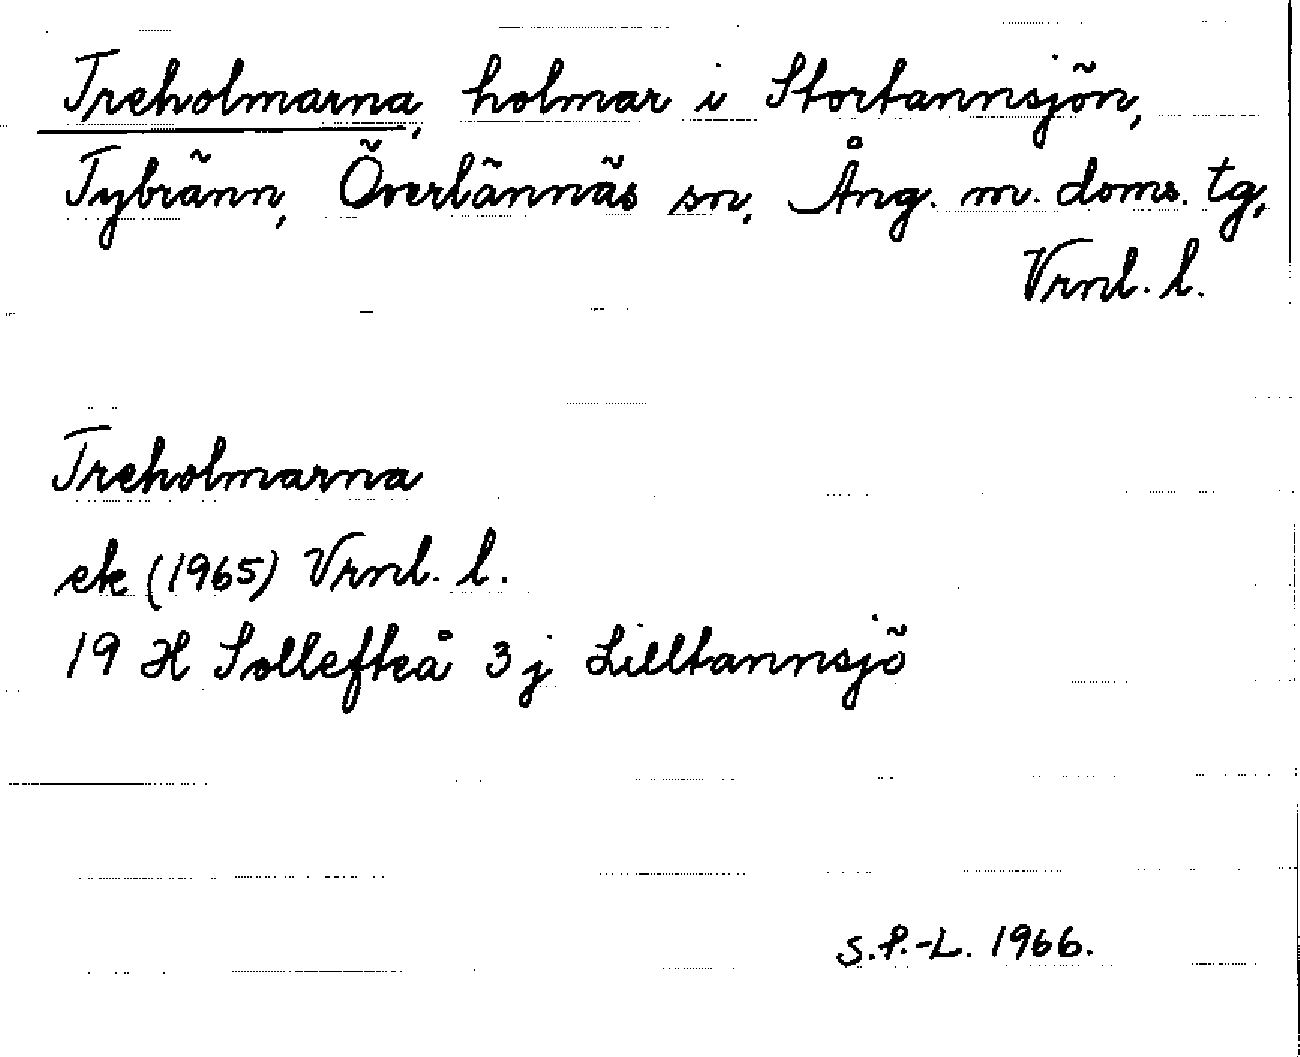 Treholmarna, holmar i Stortannsjön,
Tybränn, Överlännäs sn, Ång. m. doms. tg,
Vrnl. l.
Treholmarna
ek (1965) Vrnl. l.
19 H Sollefteå 3 j Lilltannsjö
S.P.-L. 1966.